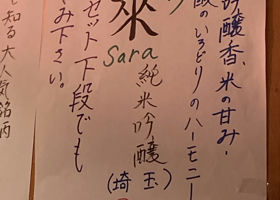 吟醸香、米の甘み・
酸のいろどりのハーモニー
來
Sara
純米吟醸
(埼玉)
セット下段でも
み下さい。
知る大人気銘柄